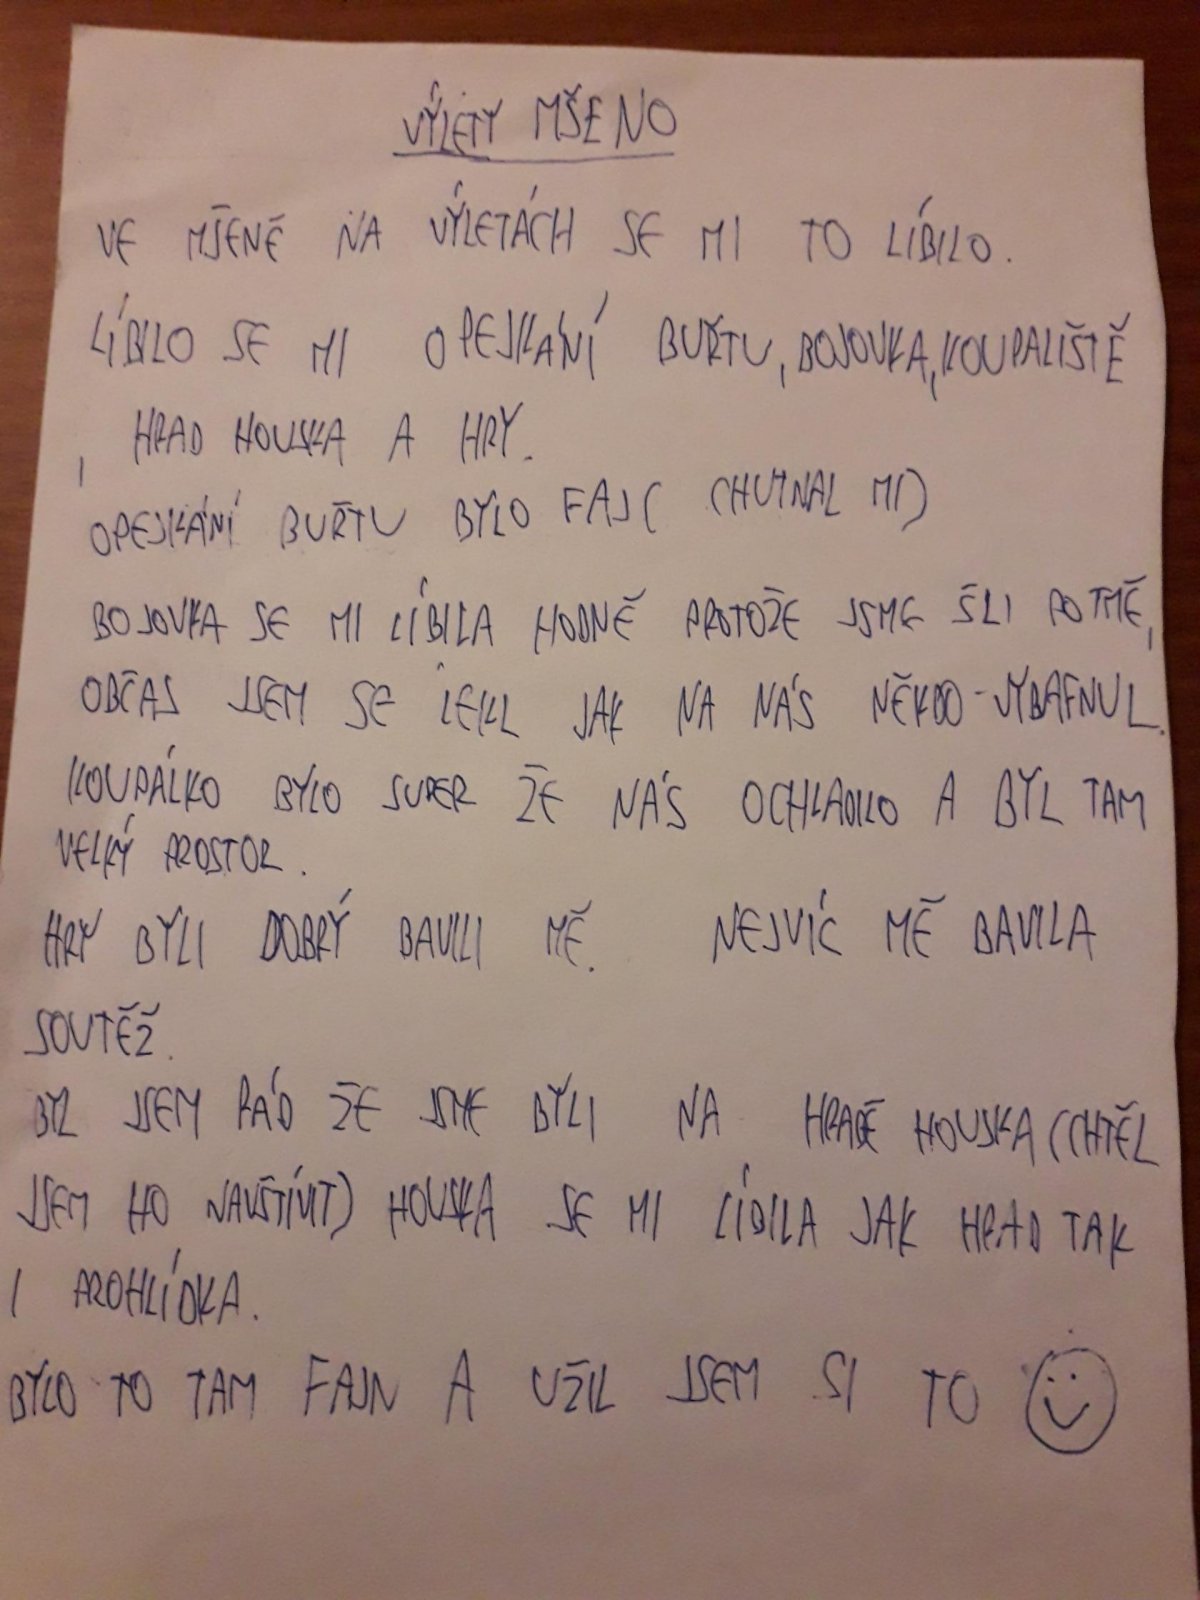 VÝLETY MŠENO
VE MŠENĚ NA VÝLETÁCH SE MI TO LÍBILO.
LÍBILO SE MI OPEJKÁNÍ BUŘTU, BOJOVKA, KOUPALIŠTĚ
, HRAD HOUSKA A HRY.
OPEJKÁNÍ BUŘTU BYLO FAJ( CHUTNAL MI)
BOJOVKA SE MI LÍBILA HODNĚ PROTOŽE JSME ŠLI POTMĚ,
OBČAS JSEM SE LEKL JAK NA NÁS NĚKDO VYBAFNUL.
KOUPÁLKO BYLO SUPER ŽE NÁS OCHLADILO A BYL TAM
VELKÝ PROSTOR.
HRY BYLI DOBRÝ BAVILI MĚ. NEJVÍC MĚ BAVILA
SOUTĚŽ.
BYL JSEM RÁD ŽE JSME BYLI NA HRADĚ HOUSKA (CHTĚL
JSEM HO NAVŠTÍVIT) HOUSKA SE MI LÍBILA JAK HRAD TAK
I PROHLÍDKA.
BYLO TO TAM FAJN A UŽIL JSEM SI TO